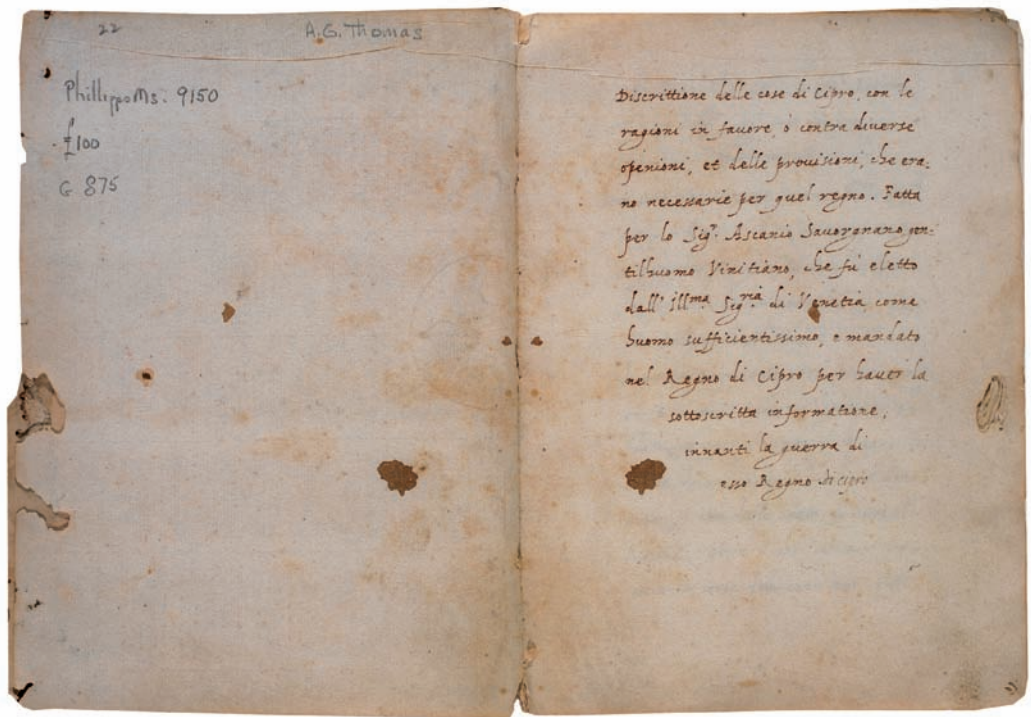 22
A.G. Thomas
Phillipps Ms. 9150
£100
G 875
Discrittione delle cose di Cipro, con le
ragioni in favore, ò contra diverse
openioni, et delle provisioni, che era:
no necessarie per quel regno. Fatta
per lo Sigr. Ascanio Savorgnano gen:
tilhuomo Vinitiano, che fù eletto
dall' Illma Sigria di Venetia come
huomo sufficientissimo, e mandato
nel Regno di Cipro per haver la
sottoscritta informatione,
innanti la guerra di
esso Regno di Cipro